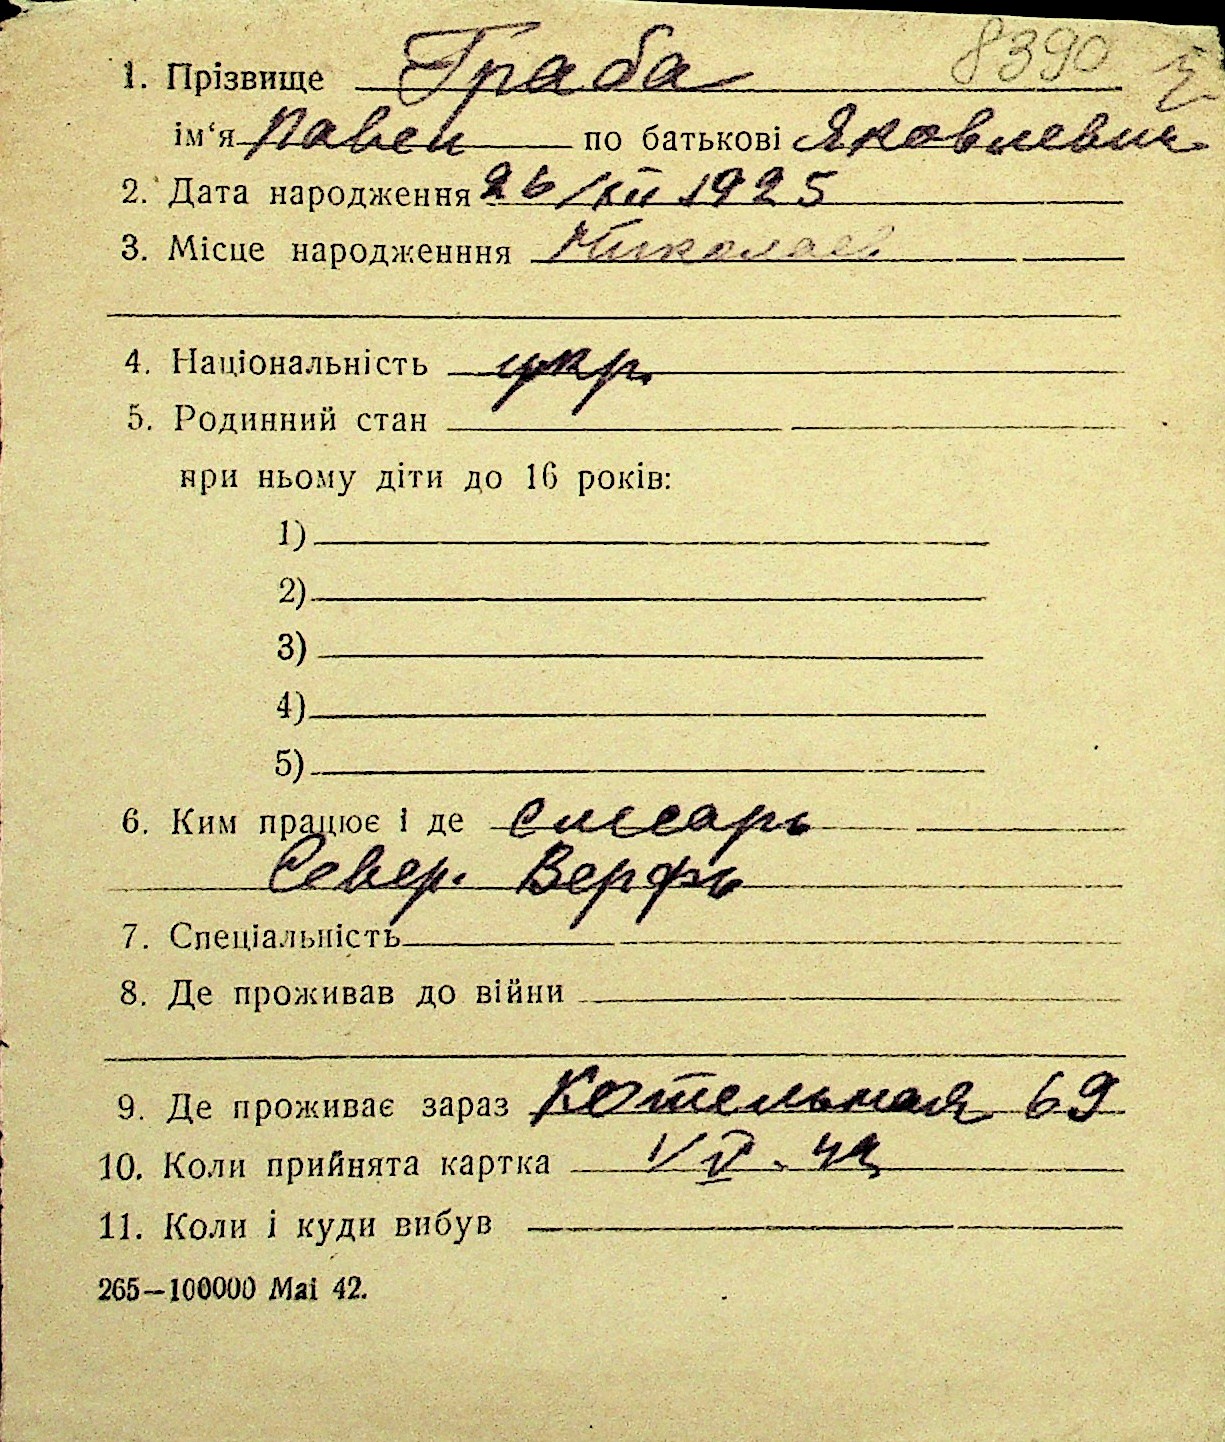 8390
1. Прізвище Граба
ім‘я Павел по батькові Яковлевич
2. Дата народження 26/XII 1925
3. Місце народженння Николаев
4. Національність укр.
5. Родинний стан
при ньому діти до 16 років:
1)
2)
3)
4)
5)
6. Ким працює і де слесарь
Север. Верфь
7. Спеціальність
8. Де проживав до війни
9. Де проживає зараз Котельная 69
10. Коли прийнята картка 1/IV. 42
11. Коли і куди вибув
265—100000 Mai 42.